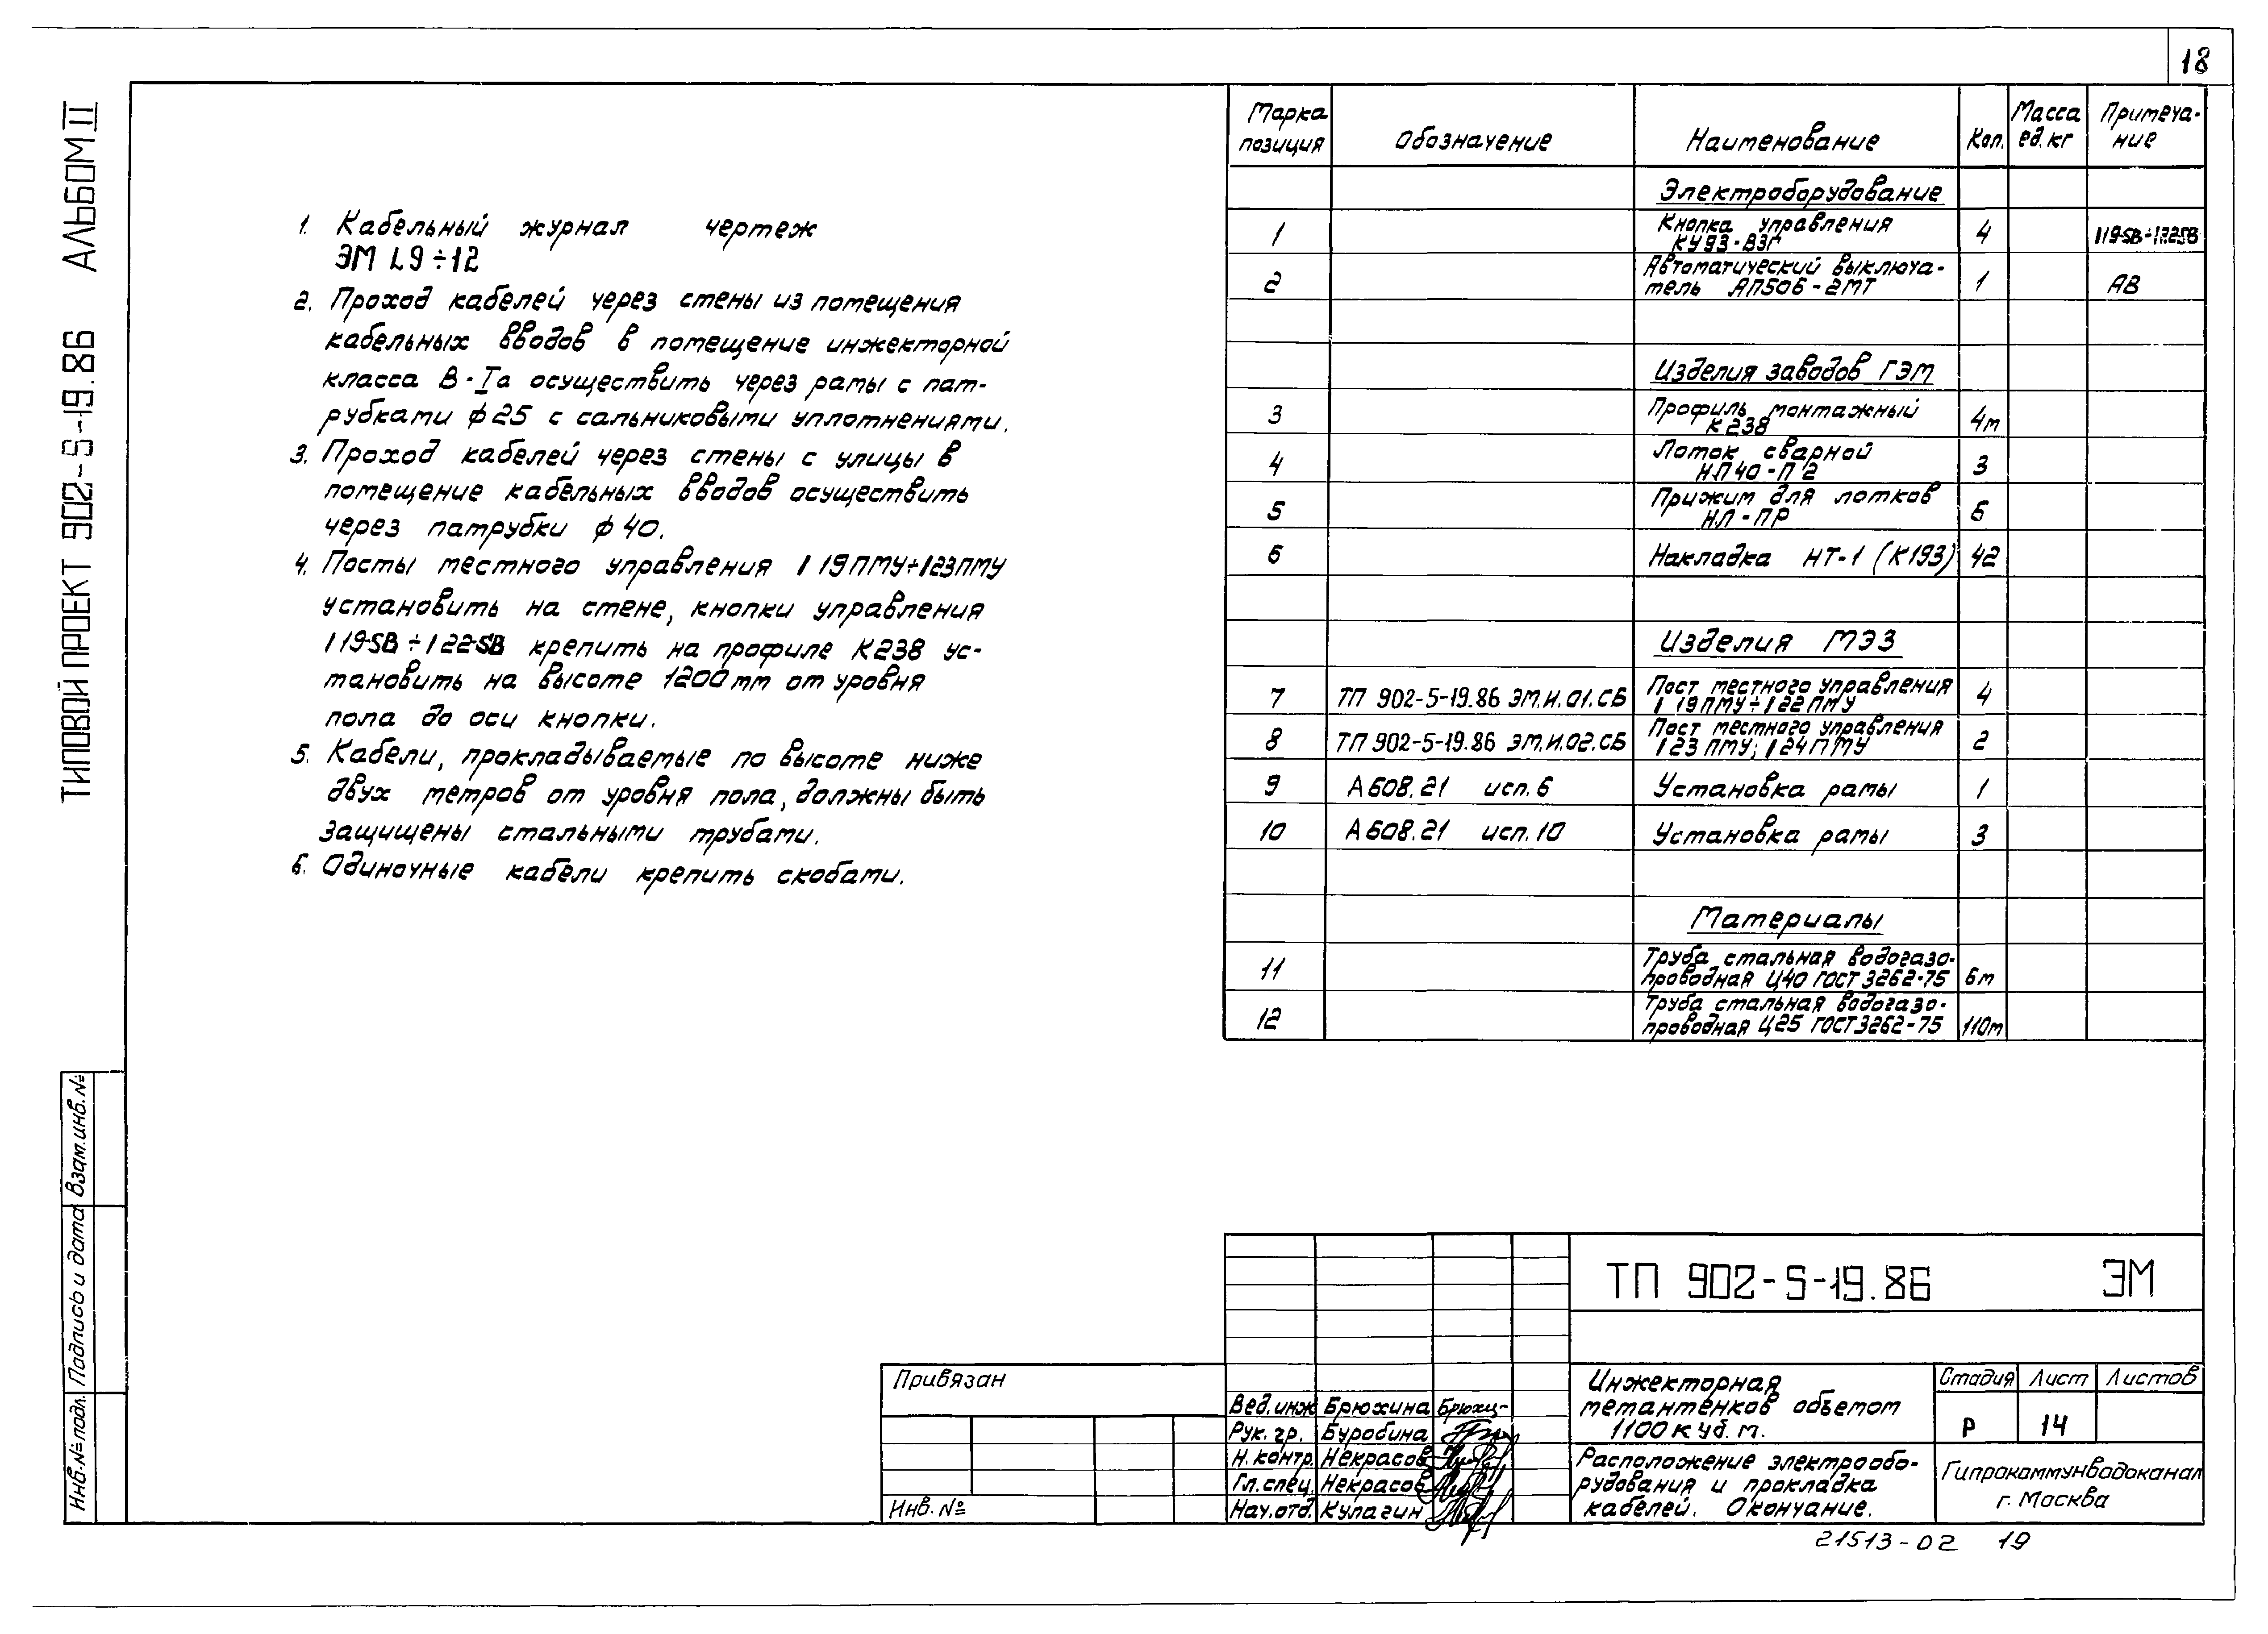 18
ТИПОВОЙ ПРОЕКТ 902-5-19.86 АЛЬБОМ II
1. Кабельный журнал чертеж
ЭМ L9÷12
2. Проход кабелей через стены из помещения
кабельных вводов в помещение инжекторной
класса В-Iа осуществить через рамы с пат-
рубками ф25 с сальниковыми уплотнениями.
3. Проход кабелей через стены с улицы в
помещение кабельных вводов осуществить
через патрубки ф40.
4. Посты местного управления 119ПМУ÷123ПМУ
установить на стене, кнопки управления
119-SB÷122-SB крепить на профиле К238 ус-
тановить на высоте 1200мм от уровня
пола до оси кнопки.
5. Кабели, прокладываемые по высоте ниже
двух метров от уровня пола, должны быть
защищены стальными трубами.
6. Одиночные кабели крепить скобами.
Марка позиция Обозначение Наименование Кол. Масса ед.кг Примеча-ние
Электрооборудование
1 Кнопка управления КУ93-ВЗГ 4 119-SB÷122SB
2 Автоматический выключа-тель АП50Б-2МТ 1 АВ
Изделия заводов ГЭМ
3 Профиль монтажный К238 4м
4 Лоток сварной НЛ40-П2 3
5 Прижим для лотков НЛ-ПР 6
6 Накладка НТ-1 (К193) 42
Изделия МЭЗ
7 ТП 902-5-19.86 ЭМ.И.01.СБ Пост местного управления 119ПМУ÷122ПМУ 4
8 ТП 902-5-19.86 ЭМ.И.02.СБ Пост местного управления 123ПМУ; 124ПМУ 2
9 А608.21 исп.6 Установка рамы 1
10 А608.21 исп.10 Установка рамы 3
Материалы
11 Труба стальная водогазо-проводная Ц40 ГОСТ 3262-75 6м
12 Труба стальная водогазо-проводная Ц25 ГОСТ 3262-75 110м
Взам.инв.№
Подпись и дата
Инв.№ подл.
Привязан
Инв.№
ТП 902-5-19.86 ЭМ
Вед.инж Брюхина Брюхи-
Рук.гр. Буробина
Н.контр. Некрасов
Гл.спец. Некрасов
Нач.отд. Кулагин
Инжекторная
метантенков объемом
1100 куб.м.
Стадия Лист Листов
Р 14
Расположение электрообо-
рудования и прокладка
кабелей. Окончание.
Гипрокоммунводоканал
г. Москва
21513-02 19